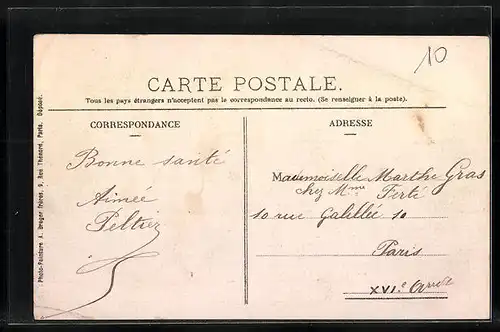 10
CARTE POSTALE.
Tous les pays étrangers n'acceptent pas le correspondance au recto. (Se renseigner à la poste).
CORRESPONDANCE
Bonne santé
Aimée
Peltier
ADRESSE
Mademoiselle Marthe Gras
chez Mme Ferté
10 rue Galillée 10
Paris
XVIe Arrdt
Photo-Peinture A. Breger frères, 9, Rue Thénard, Paris. Déposé.